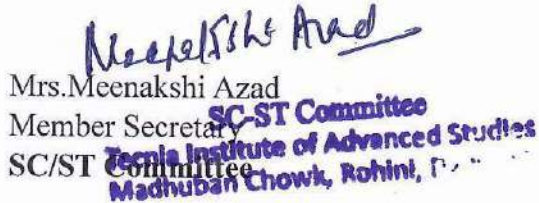 Meenakshi Azad
Mrs.Meenakshi Azad
Member Secretary
SC/ST Committee
SC-ST Committee
Tecnia Institute of Advanced Studies
Madhuban Chowk, Rohini,